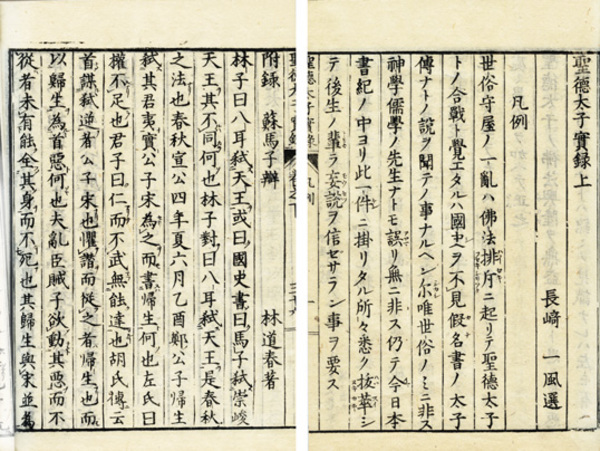 聖德太子實錄上
長﨑一風選
凡例
世俗守屋ノ一亂ハ佛法排斥ニ起リテ聖德太子
トノ合戰ト覺エタルハ國史ヲ不見假名書ノ太子
傳ナトノ說ヲ聞テノ事ナルヘシ尔唯世俗ノミニ非ス
神學儒學ノ先生ナトモ誤リ無ニ非ス仍テ今日本
書紀ノ中ヨリ此一件ニ掛リタル所々悉ク抜萃シ
テ後生ノ輩ラ妄說ヲ信セサラン事ヲ要ス
附錄 蘇馬子辯 林道春著
林子曰八耳弑天王或曰國史書曰馬子弑崇峻
天王其不同何也林子對曰八耳弑天王是春秋
之法也春秋宣公四年夏六月乙酉鄭公子歸生
弑其君夷實公子宋為之而書歸生何也左氏曰
權不足也君子曰仁而不武無能達也胡氏傳云
首謀弑逆者公子宋也懼譖而從之者歸生也而
以歸生為首惡何也夫亂臣賊子欲動其惡而不
從者未有能全其身而不死也其歸生與宋並為